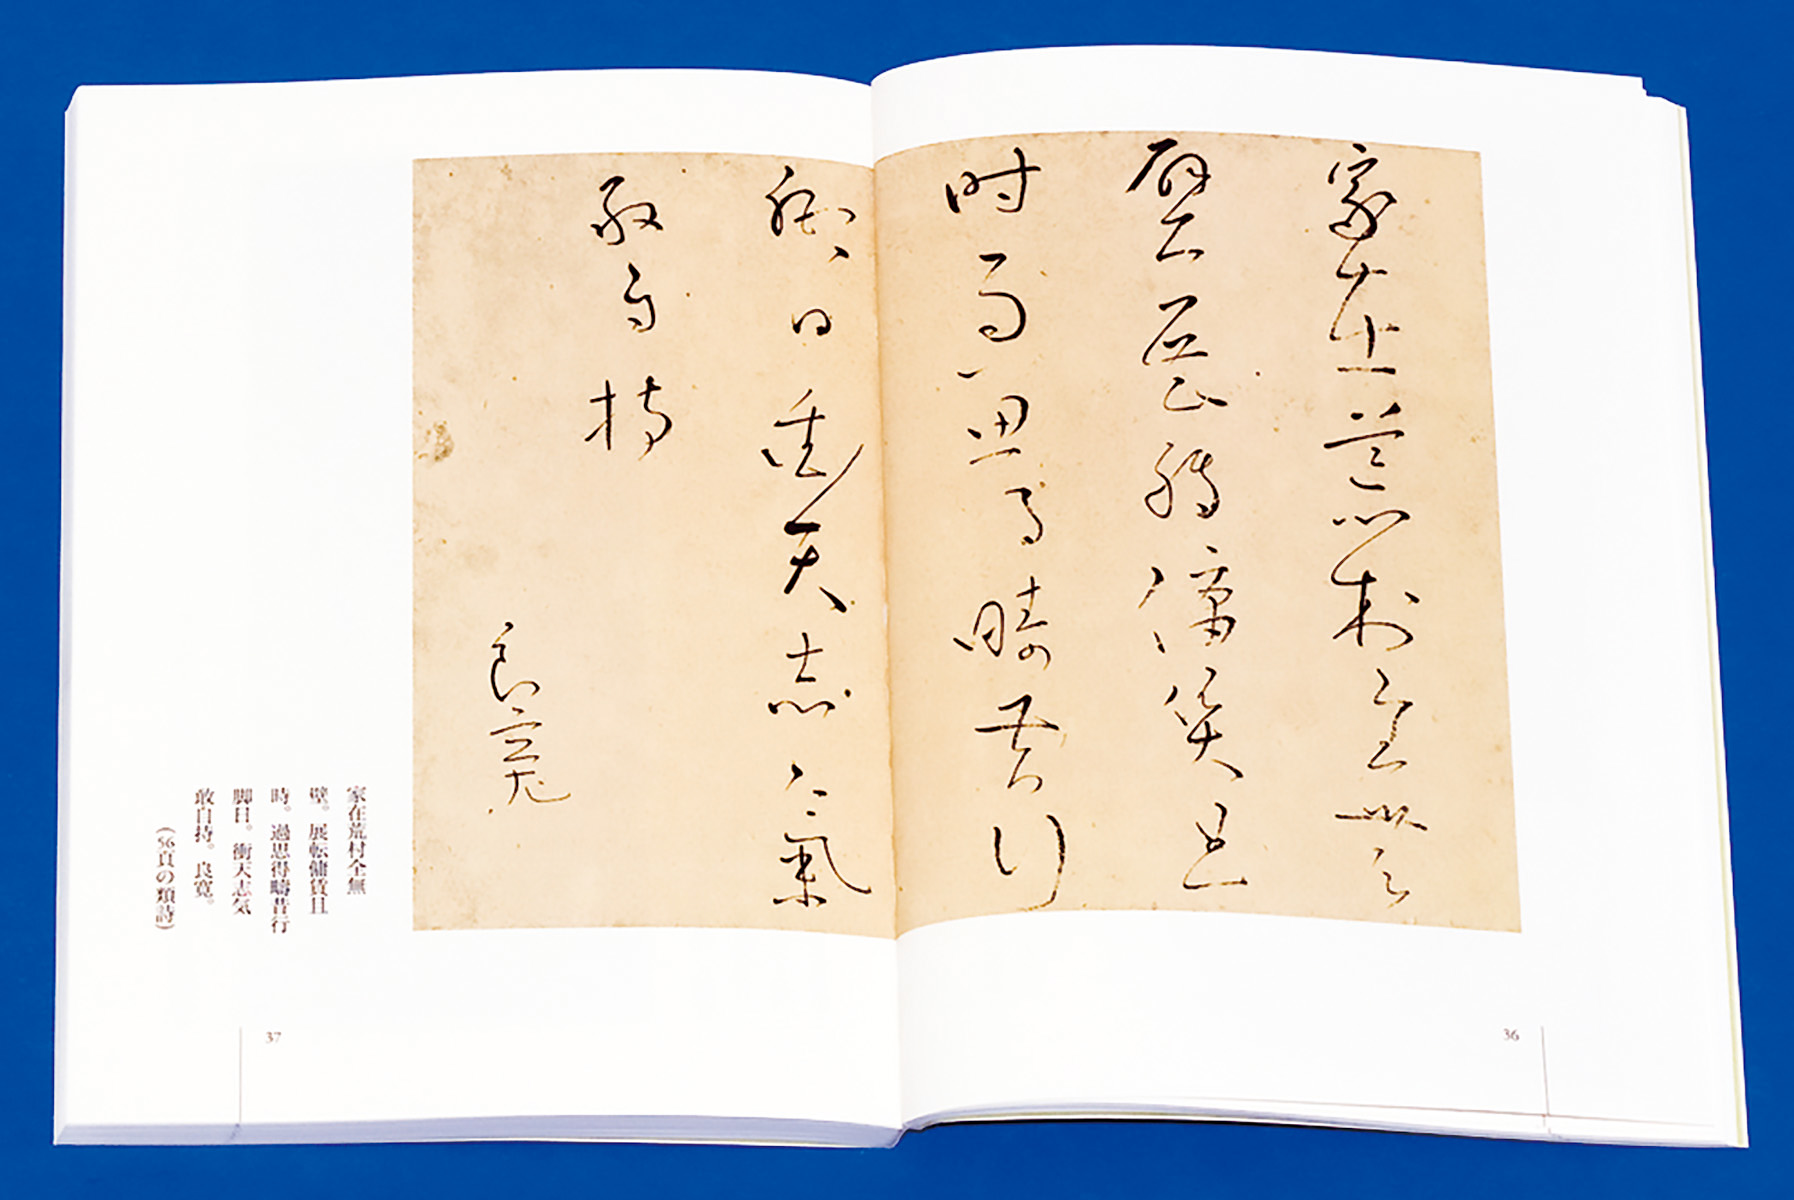 家在荒村全無
壁展轉傭賃且
時過思得疇昔行
脚日衝天志氣
敢自持
良寛
家在荒村全無
壁。展転傭賃且
時。過思得疇昔行
脚日。衝天志気
敢自持。良寛。
(56頁の類詩)
36
37